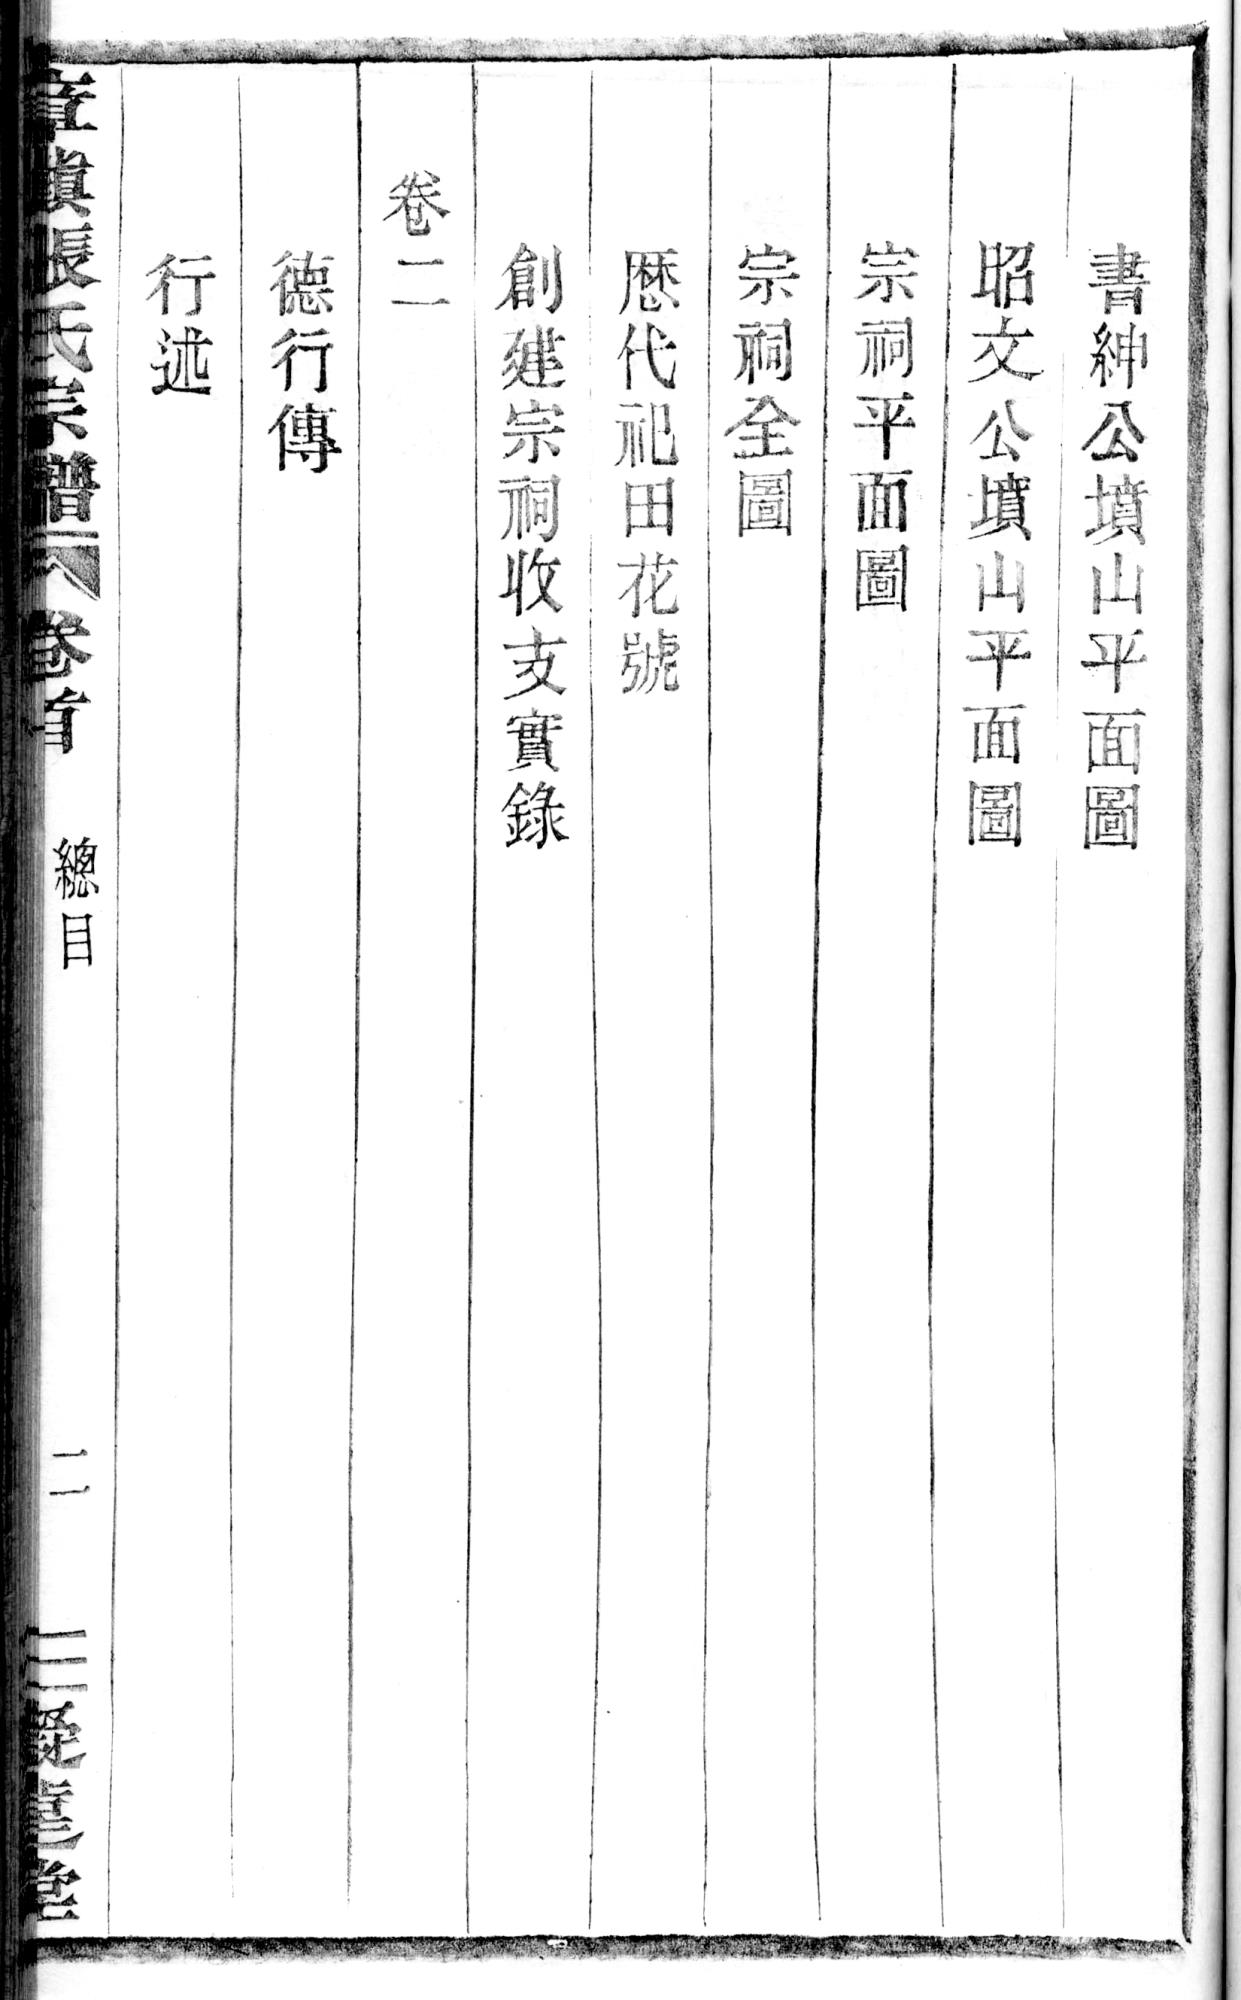 書紳公墳山平面圖
昭文公墳山平面圖
宗祠平面圖
宗祠全圖
歷代祀田花號
創建宗祠收支實錄
卷二
德行傳
行述
章鎮張氏宗譜 卷首 總目 二 三 堂